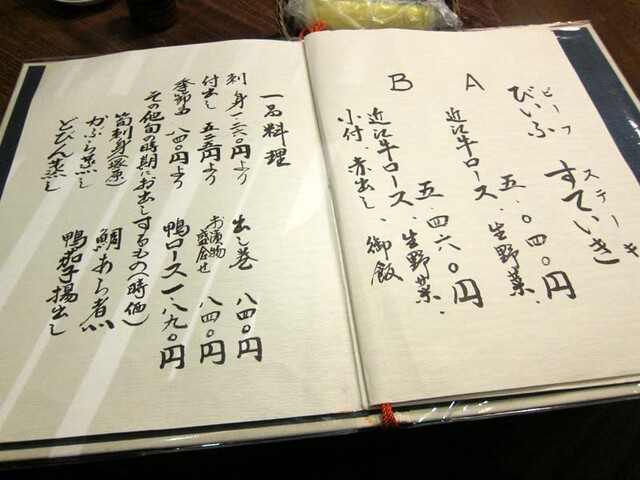 ビーフ ステーキ
びいふ すていき
A 五、〇四〇円
近江牛ロース、生野菜、
B 五、四六〇円
近江牛ロース、生野菜、
小付、赤出し、御飯
一品料理
刺身 一二六〇円より
付出し 五二五円より
季節皿 八四〇円より
出し巻 八四〇円
お漬物盛合せ 八四〇円
鴨ロース 一、八九〇円
その他旬の時期にお出しするもの(時価)
筍刺身(塚原) 鯛あら煮
かぶら蒸し 鴨茄子揚出し
どびん蒸し